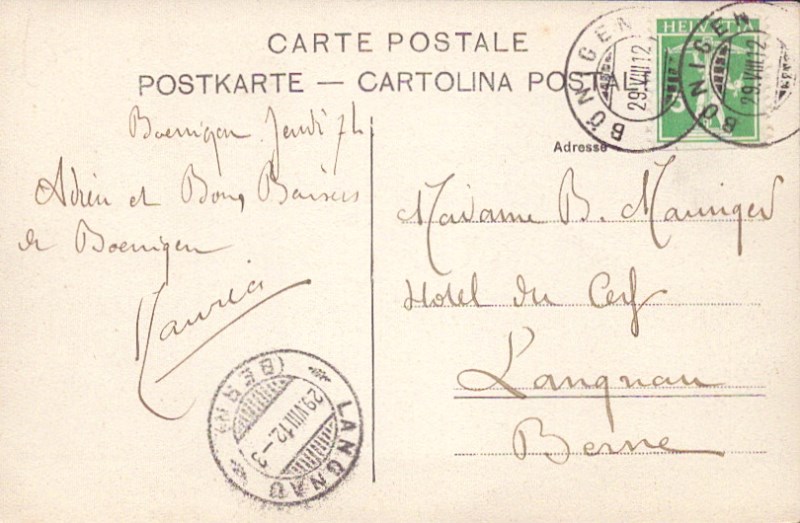 CARTE POSTALE
POSTKARTE — CARTOLINA POSTALE
HELVETIA
5
BÖNIGEN
29.VIII.12
BÖNIGEN
29.VIII.12
Adresse
Boenigen Jeudi 7h
Adieu et Bons Baisers
de Boenigen
Maurice
Madame B.
Hotel du Cerf
Langnau
Berne
LANGNAU (BERN)
29.VIII.12.–3